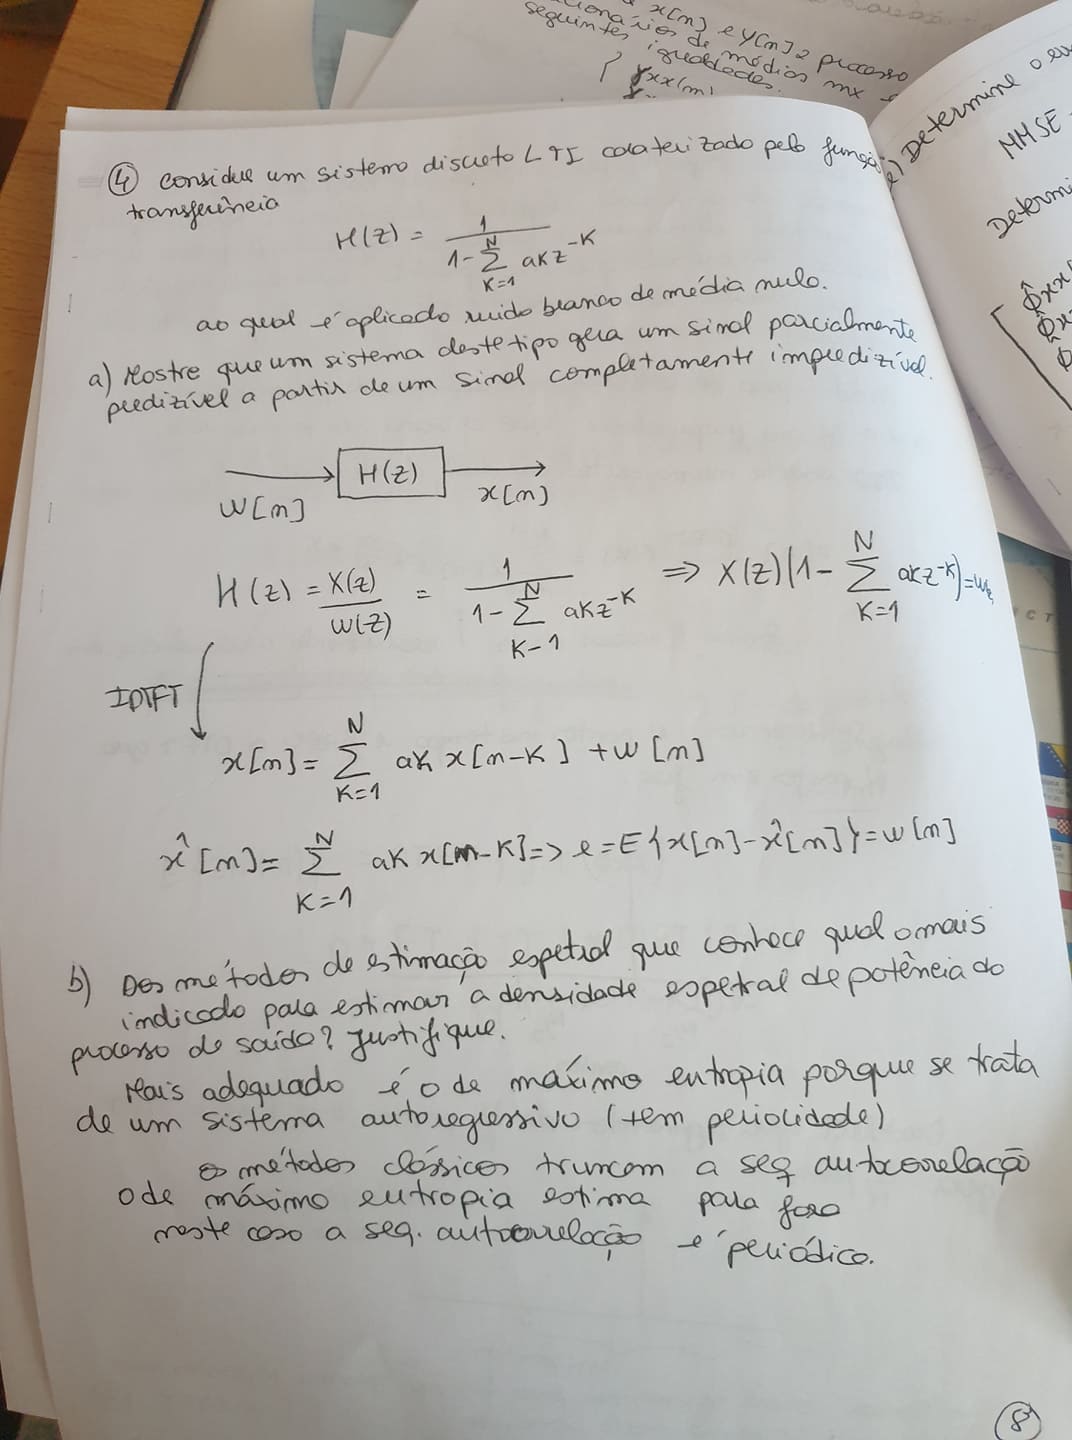 x[n] e y[n] 2 processo
cionários de médias mx e
seguintes igualdades.
γxx(m)
e) Determine o
MMSE
Determi
④ considere um sistema discreto LTI caraterizado pela função
transferência
H(z) = 1 / 1-∑ᴺₖ₌₁ akz^-K
ao qual é aplicado ruído branco de média nula.
a) Mostre que um sistema deste tipo gera um sinal parcialmente
predizível a partir de um sinal completamente impredizível.
H(z)
W[n]
x[n]
H(z) = X(z)/W(z) = 1 / 1-∑ᴺ_K-1 akz^-K => X(z)(1-∑ᴺ_K=1 akz^-K)=Wz
IDTFT
x[n] = ∑ᴺ_K=1 ak x[n-K] + w[n]
x̂[n] = ∑ᴺ_K=1 ak x[n-K] => e=E{x[n]-x̂[n]}=w[n]
b) Dos métodos de estimação espetral que conhece qual o mais
indicado para estimar a densidade espetral de potência do
processo de saída? Justifique.
Mais adequado é o de máximo entropia porque se trata
de um sistema autoregressivo (tem periocidade)
os métodos clássicos truncam a seq autocorrelação
o de máximo entropia estima para fora
neste caso a seq. autocorrelação é periódica.
8